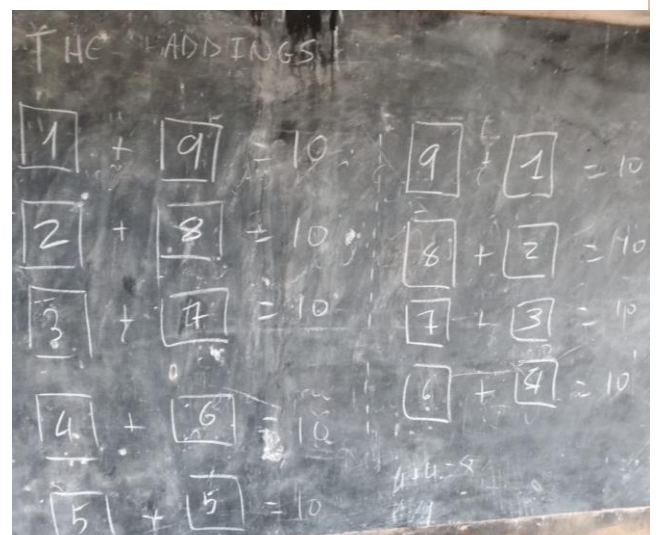 THE ADDINGS
1 + 9 = 10
2 + 8 = 10
3 + 7 = 10
4 + 6 = 10
5 + 5 = 10
9 + 1 = 10
8 + 2 = 10
7 + 3 = 10
6 + 4 = 10
4+4=8